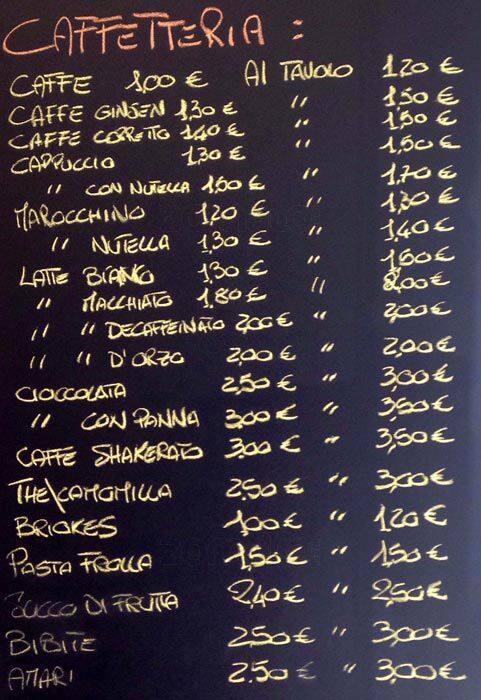 CAFFETTERIA :
CAFFE 1,00 € AI TAVOLO 1,20 €
CAFFE GINSEN 1,30 € " 1,50 €
CAFFE CORRETO 1,40 € " 1,50 €
CAPPUCCIO 1,30 € " 1,50 €
" CON NUTELLA 1,50 € " 1,70 €
MAROCCHINO 1,20 € " 1,30 €
" NUTELLA 1,30 € " 1,40 €
LATTE BIANO 1,30 € " 1,60 €
" MACCHIATO 1,80 € " 2,00 €
" " DECAFFEINATO 2,00 € " 2,00 €
" " D'ORZO 2,00 € " 2,00 €
CIOCCOLATA 2,50 € " 3,00 €
" CON PANNA 3,00 € " 3,50 €
CAFFE SHAKERATO 3,00 € " 3,50 €
THE\CAMOMILLA 2,50 € " 3,00 €
BRIOKES 1,00 € " 1,20 €
PASTA FROLLA 1,50 € " 1,50 €
SUCCO DI FRUTTA 2,40 € " 2,50 €
BIBITE 2,50 € " 3,00 €
AMARI 2,50 € " 3,00 €